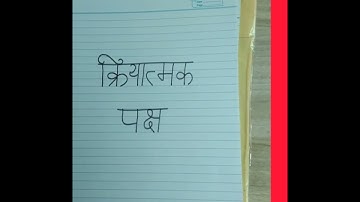 क्रियात्मक
पक्ष